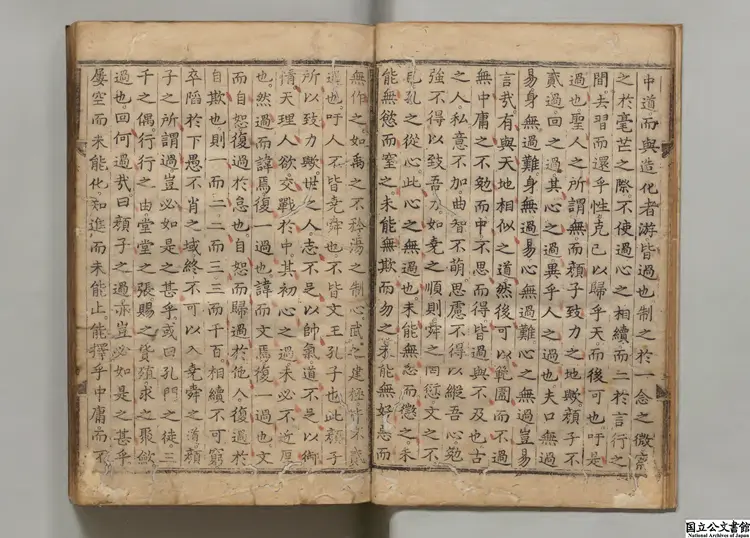 中道而與造化者游皆過也制之於一念之微察
之於毫芒之際不使過心之相續而二於言行之
間去習而還乎性克己以歸乎天而後可也吁是
過也聖人之所謂無而顏子致力之地歟顏子不
貳過回之過其心之過異乎人之過也夫口無過
易身無過難身無過易心無過難心之無過豈易
言哉有與天地相似之道然後可以範圍而不過
無中庸之不勉而中不思而得皆過與不及也古
之人私意不加曲智不萌思慮不得以縱吾心勉
強不得以致吾力如堯之順則舜之罔愆文之不
已孔之從心此心之無過也未能無忿而懲之未
能無慾而窒之未能無欺而勿之未能無好惡而
無作之如禹之不矜湯之制心武之建極皆不貳
過也吁人不皆堯舜也不皆文王孔子也此顏子
所以致力歟世之人志不足以帥氣道不足以御
情天理人欲交戰於中其初心之過未必不近厚
也然過而諱焉復一過也諱而文焉復一過也文
而自恕復過於怠也自恕而歸過於他人復過於
自欺也則一而二二而三三而千百相續不可窮
卒陷於下愚不肖之域終不可以入堯舜之道顏
子之所謂過豈必如是之甚乎或曰孔門之徒三
千之偶行行之由堂堂之張賜之貨殖求之聚斂
過也回何過哉曰顏子之過亦豈必如是之甚乎
屢空而未能化知進而未能止能擇乎中庸而不
国立公文書館
National Archives of Japan